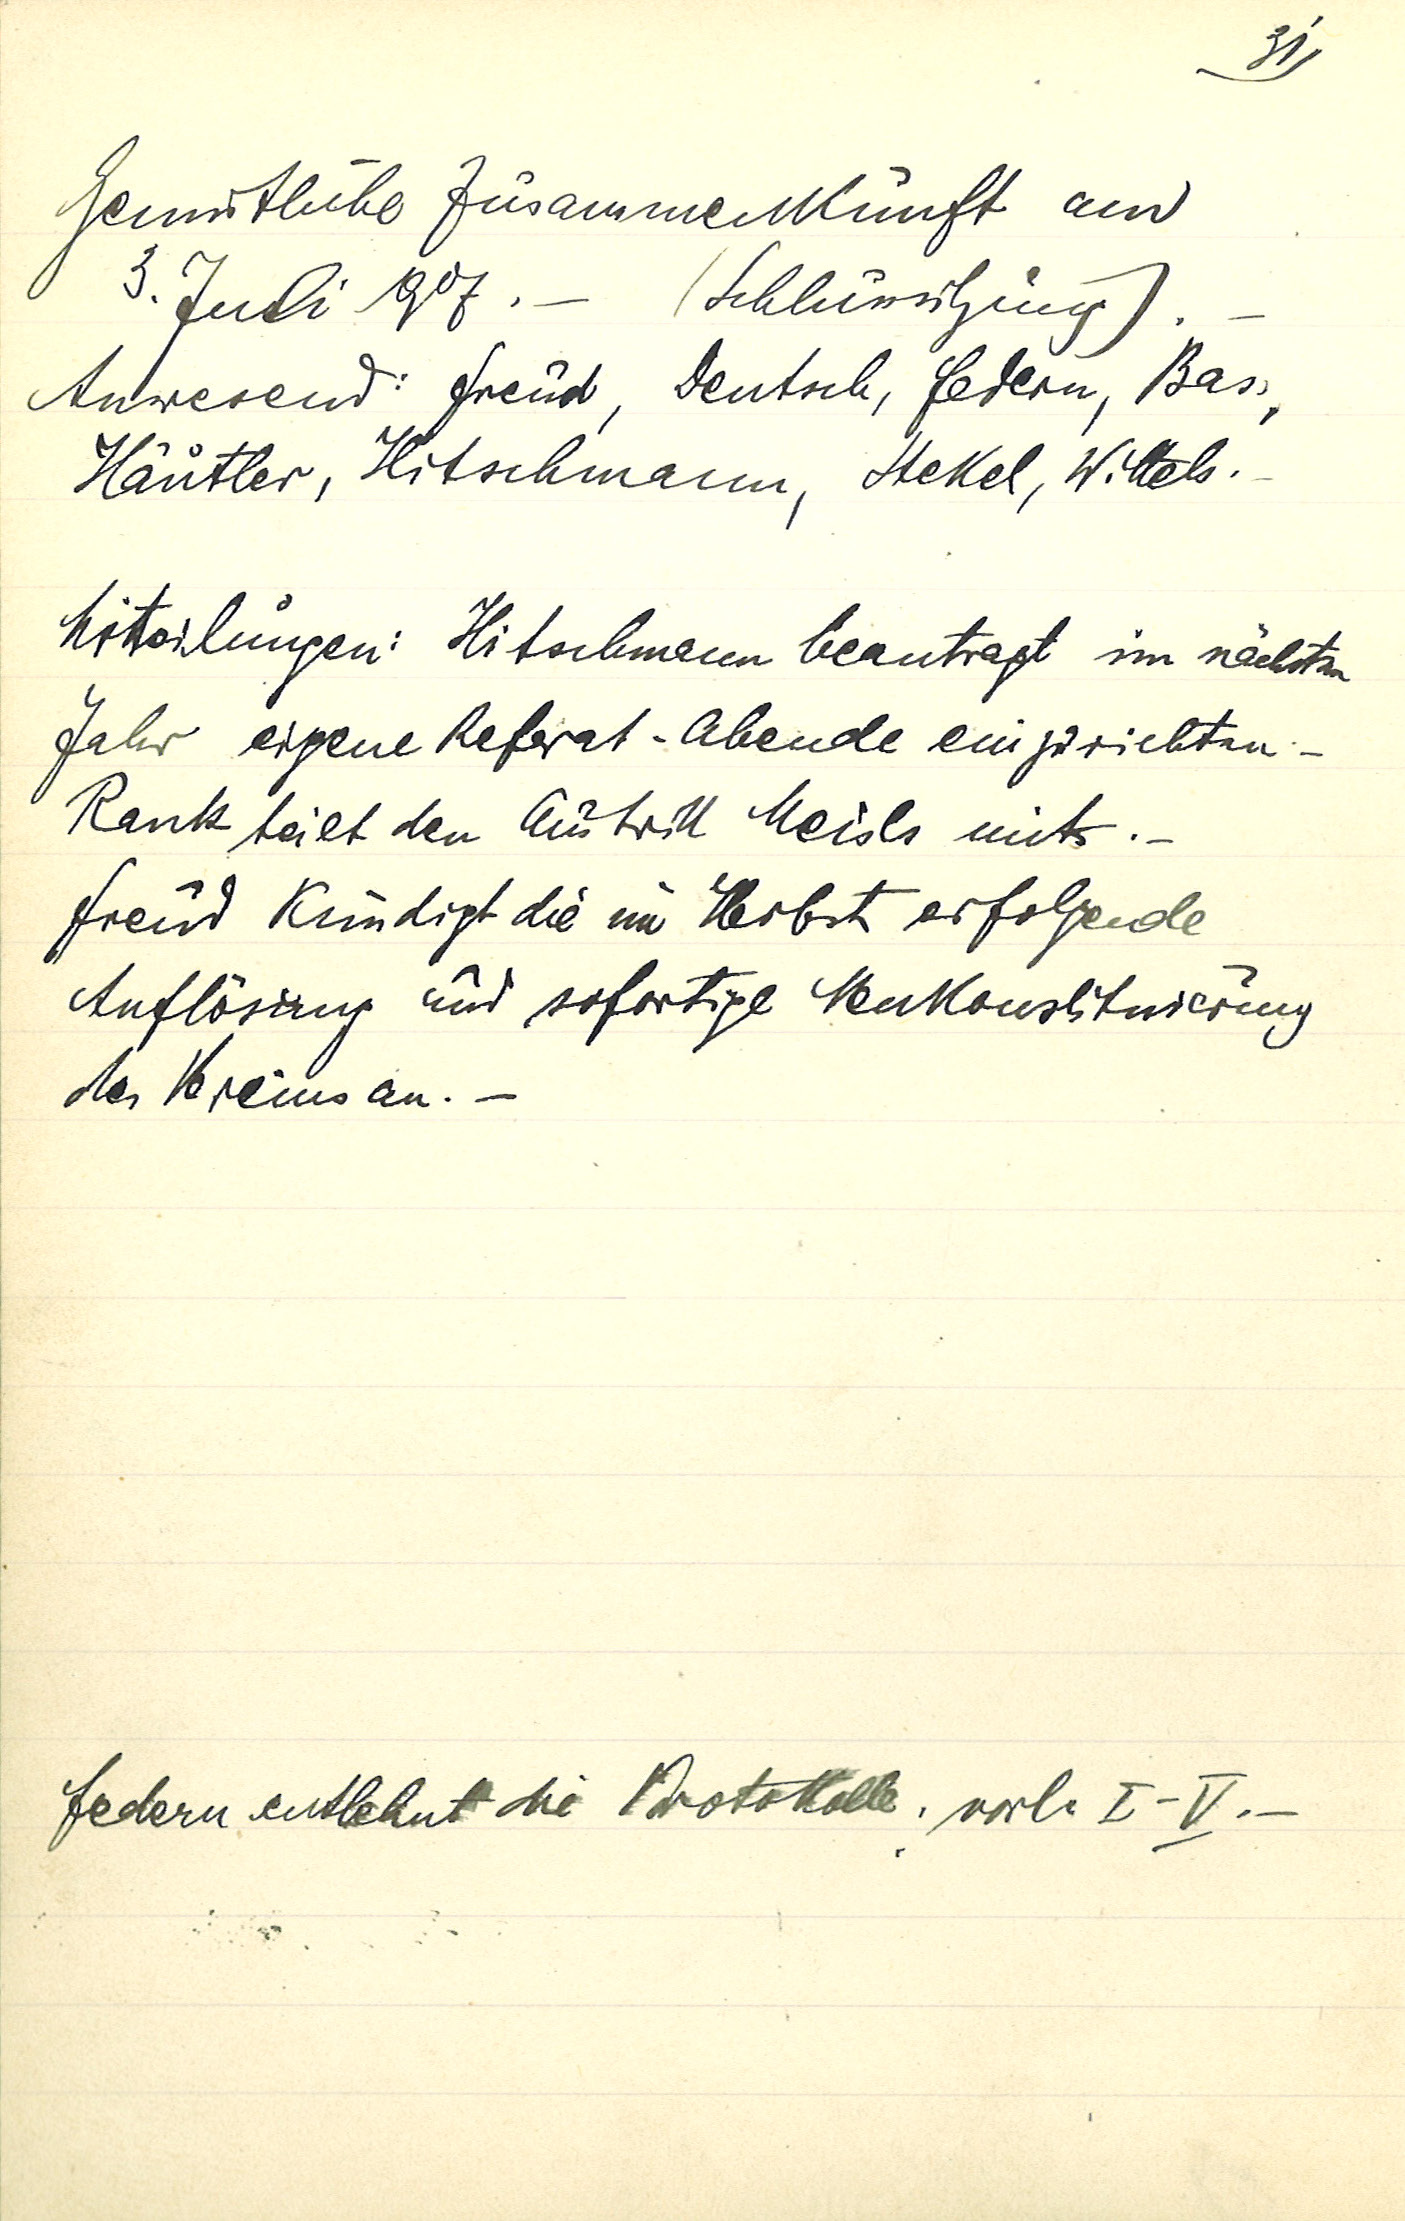 31,
Gemütliche Zusammenkunft am
3. Juli 907. – (Schlußsitzung). –
Anwesend: Freud, Deutsch, Federn, Bass,
Häutler, Hitschmann, Stekel, Wittels. –
Mitteilungen: Hitschmann beantragt im nächsten
Jahr eigene Referat-Abende einzurichten –
Rank teilt den Austritt Meisls mit. –
Freud kündigt die im Herbst erfolgende
Auflösung und sofortige Neukonstituierung
des Vereins an. –
Federn entlehnt die Protokolle. I–V. –